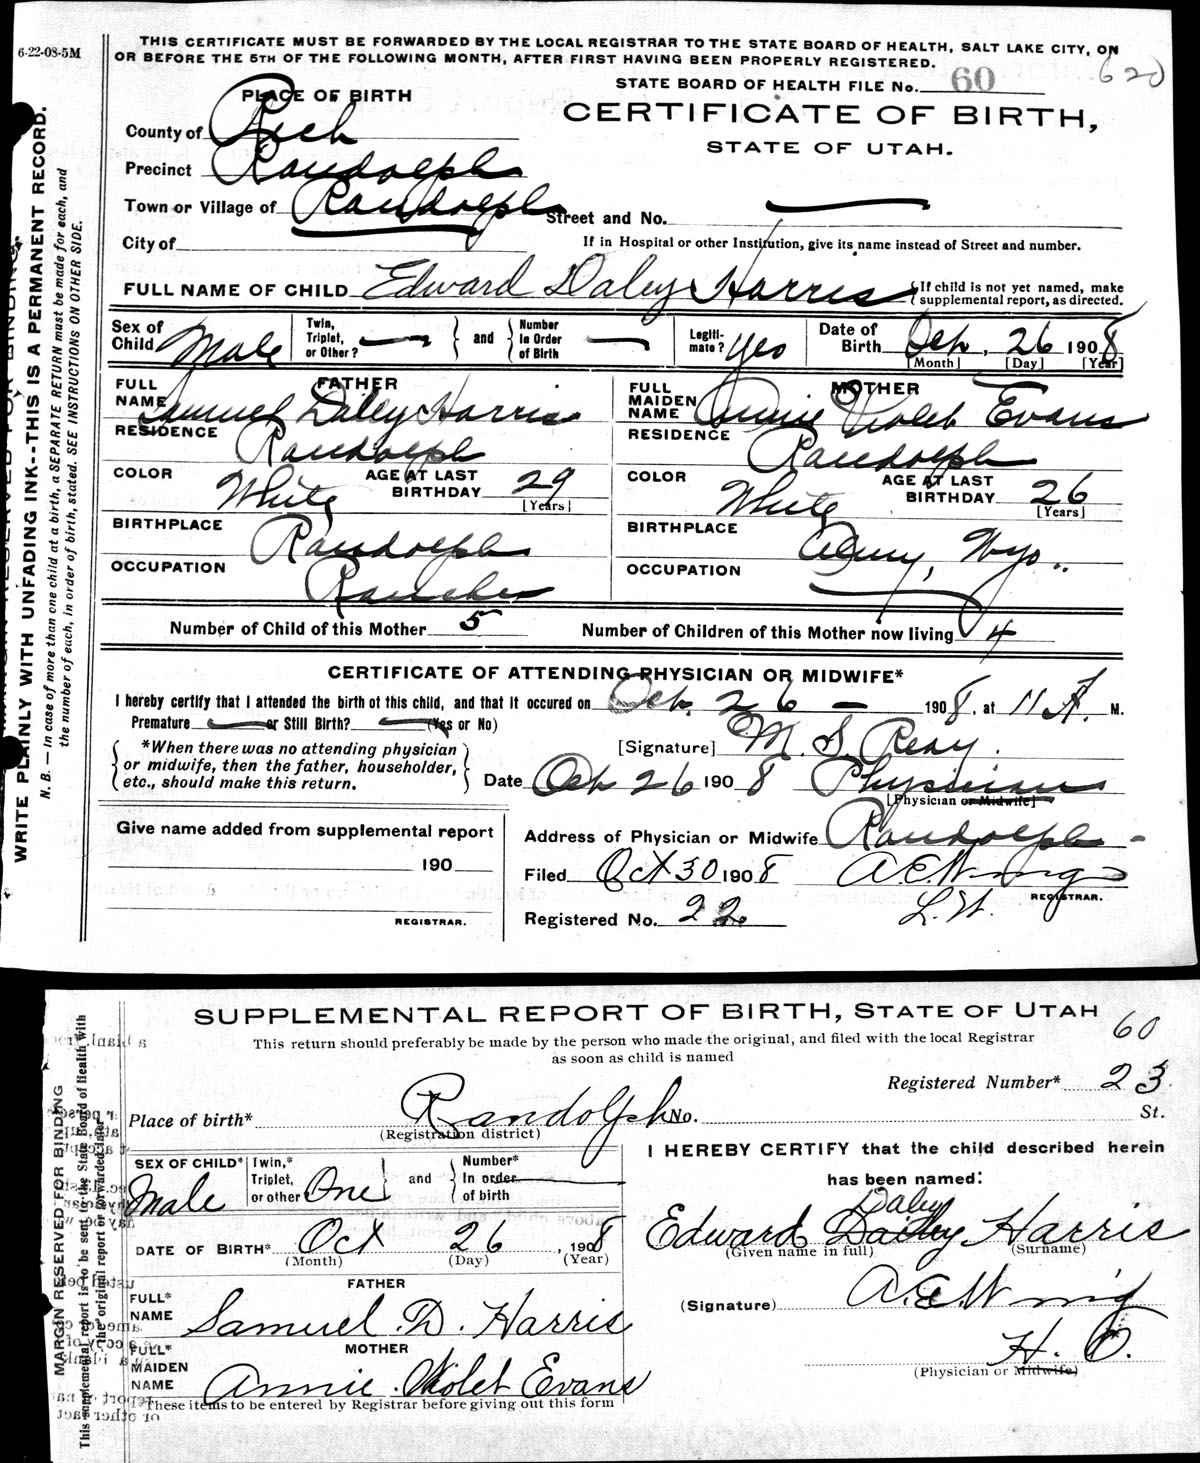 6-22-08-5M
THIS CERTIFICATE MUST BE FORWARDED BY THE LOCAL REGISTRAR TO THE STATE BOARD OF HEALTH, SALT LAKE CITY, ON
OR BEFORE THE 5TH OF THE FOLLOWING MONTH, AFTER FIRST HAVING BEEN PROPERLY REGISTERED.
620
STATE BOARD OF HEALTH FILE No. 60
PLACE OF BIRTH
CERTIFICATE OF BIRTH,
STATE OF UTAH.
County of Rich
Precinct Randolph
Town or Village of Randolph Street and No.
City of If in Hospital or other Institution, give its name instead of Street and number.
FULL NAME OF CHILD Edward Daley Harris
{If child is not yet named, make
supplemental report, as directed.
Sex of Child Male
Twin, Triplet, or Other? } and { Number In Order of Birth
Legiti-mate? Yes
Date of Birth Oct. 26 1908
[Month] [Day] [Year]
FATHER
FULL NAME Samuel Daley Harris
RESIDENCE Randolph
COLOR White AGE AT LAST BIRTHDAY 29 [Years]
BIRTHPLACE Randolph
OCCUPATION Rancher
MOTHER
FULL MAIDEN NAME Annie Violet Evans
RESIDENCE Randolph
COLOR White AGE AT LAST BIRTHDAY 26 [Years]
BIRTHPLACE Almy, Wyo.
OCCUPATION
Number of Child of this Mother 5 Number of Children of this Mother now living 4
CERTIFICATE OF ATTENDING PHYSICIAN OR MIDWIFE*
I hereby certify that I attended the birth of this child, and that it occured on Oct. 26 1908. at 11 A. M.
Premature or Still Birth? (Yes or No)
{ *When there was no attending physician
or midwife, then the father, householder,
etc., should make this return. }
[Signature] M. S. Reay.
Date Oct 26 1908 Physician
[Physician or Midwife]
Give name added from supplemental report
190
REGISTRAR.
Address of Physician or Midwife Randolph
Filed Oct 30 1908 A. E. Wning
REGISTRAR.
Registered No. 22
WRITE PLAINLY WITH UNFADING INK--THIS IS A PERMANENT RECORD.
N. B. — In case of more than one child at a birth, a SEPARATE RETURN must be made for each, and
the number of each, in order of birth, stated. SEE INSTRUCTIONS ON OTHER SIDE.
SUPPLEMENTAL REPORT OF BIRTH, STATE OF UTAH
60
This return should preferably be made by the person who made the original, and filed with the local Registrar
as soon as child is named
Registered Number* 23
Place of birth* Randolph No. St.
(Registration district)
SEX OF CHILD* Male
Twin,* Triplet, or other One } and { Number* In order of birth
DATE OF BIRTH* Oct 26, 1908
(Month) (Day) (Year)
FATHER
FULL* NAME Samuel D. Harris
MOTHER
FULL* MAIDEN NAME Annie Violet Evans
*These items to be entered by Registrar before giving out this form
I HEREBY CERTIFY that the child described herein
has been named:
Daley
Edward Dailey Harris
(Given name in full) (Surname)
(Signature)
H. O.
(Physician or Midwife)
MARGIN RESERVED FOR BINDING
This supplemental report is to be sent to the State Board of Health with
the original report or forwarded later